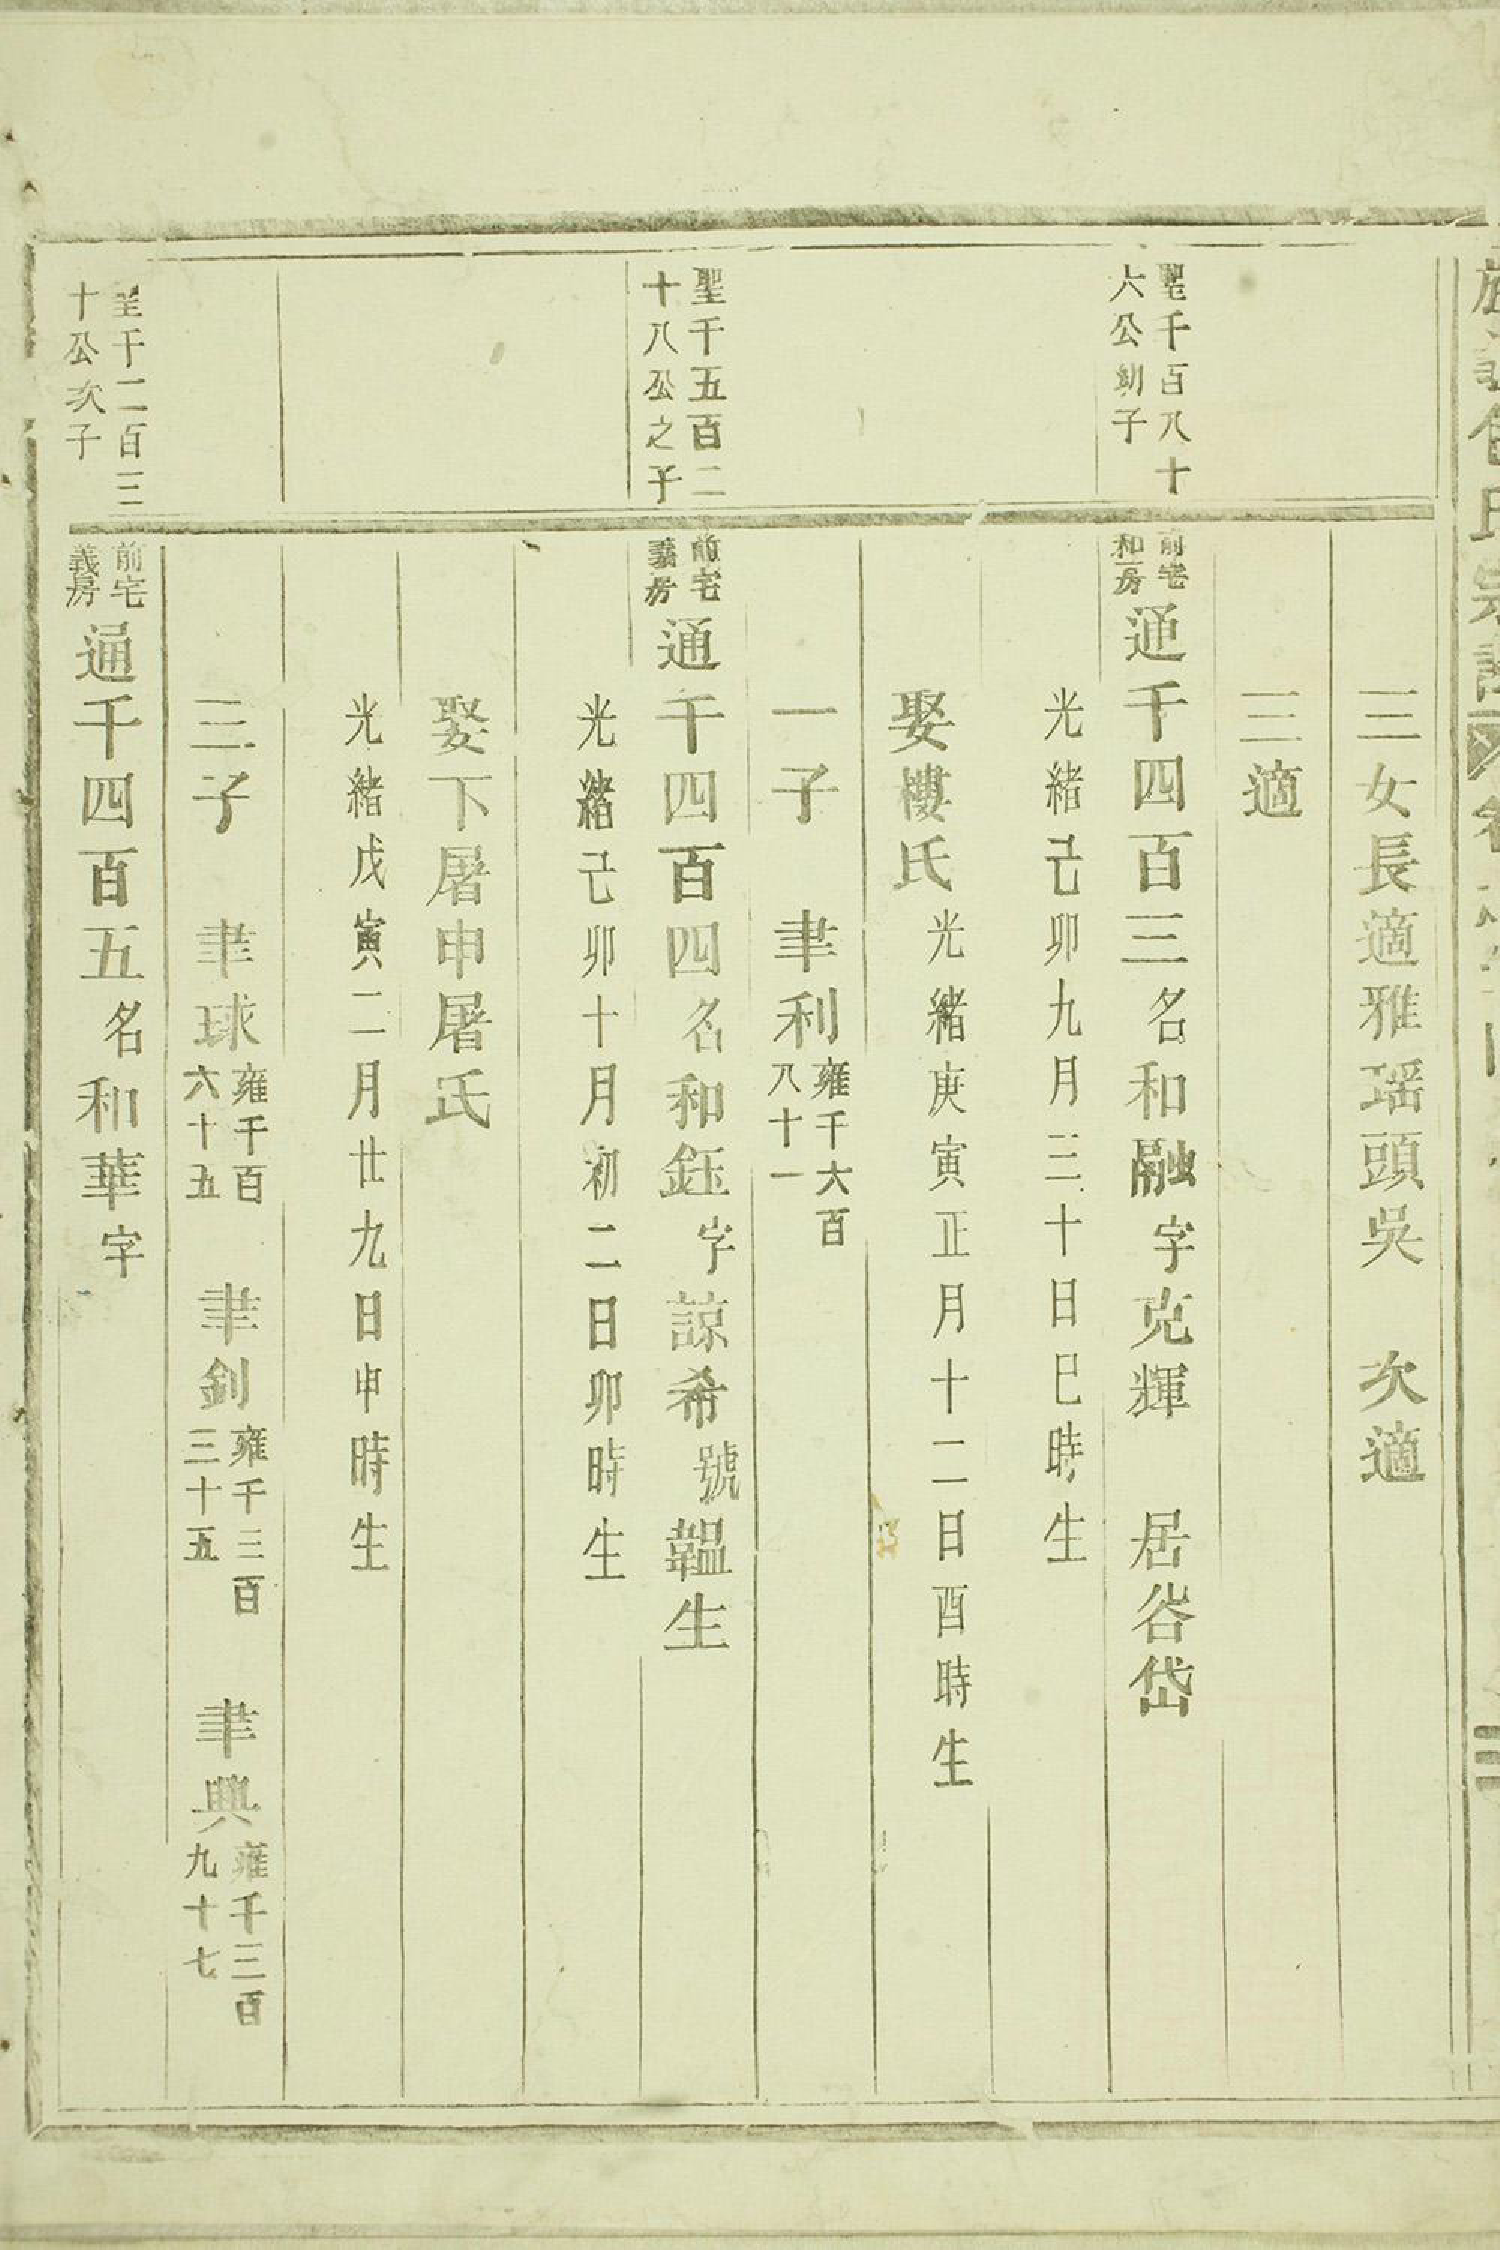 三女長適雅瑶頭吳　次適
三適
聖千百八十
六公幼子
前宅
和房
通千四百三名和融字克輝　居谷岱
光緒己卯九月三十日巳時生
娶樓氏光緒庚寅正月十二日酉時生
一子　聿利雍千六百八十一
聖千五百二
十八公之子
前宅
義房
通千四百四名和鈺字諒希號韞生
光緒己卯十月初二日卯時生
娶下屠申屠氏
光緒戊寅二月廿九日申時生
三子　聿球雍千百六十五　聿釗雍千三百三十五　聿興雍千三百九十七
聖千二百三
十公次子
前宅
義房
通千四百五名和華字